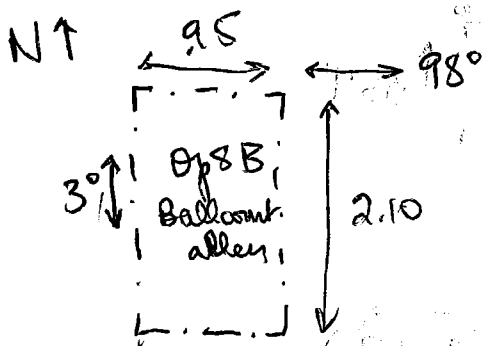 N↑
.95
98°
3°
Op8B
Ballcourt
alley
2.10